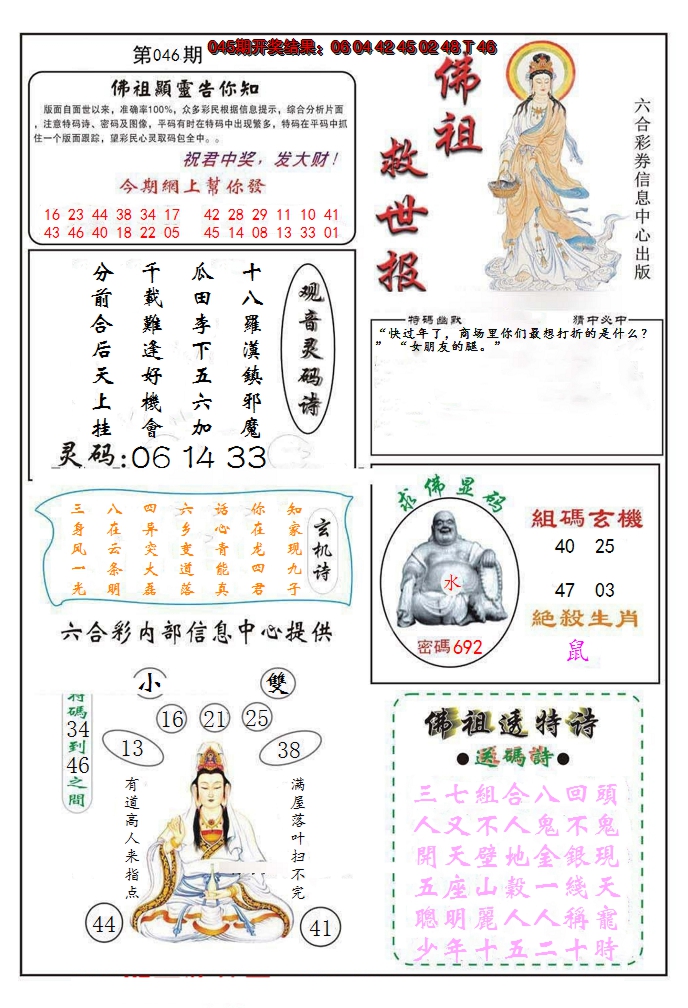 第046期
045期开奖结果：06 04 42 45 02 48 T 46
佛祖顯靈告你知
版面自面世以来，准确率100%，众多彩民根据信息提示，综合分析片面
，注意特码诗、密码及图像，平码有时在特码中出现繁多，特码在平码中抓
住一个版面跟踪，望彩民心灵取码包全中。。
祝君中奖，发大财！
今期網上幫你發
16 23 44 38 34 17 42 28 29 11 10 41
43 46 40 18 22 05 45 14 08 13 33 01
佛祖
救世报
六合彩券信息中心出版
观音灵码诗
十八羅漢鎮邪魔
瓜田李下五六加
千載難逢好機會
分前合后天上挂
灵码:06 14 33
特碼幽默 猜中必中
“快过年了，商场里你们最想打折的是什么？
” “女朋友的腿。”
玄机诗
知家现九子
你在龙四君
话心青能真
六乡变道落
四异灾大磊
八在云条明
三身风一光
六合彩内部信息中心提供
求佛显码
水
密碼692
組碼玄機
40 25
47 03
絶殺生肖
鼠
小 雙
特碼34到46之間
16 21 25
13 38
有道高人来指点
满屋落叶扫不完
44 41
佛祖透特诗
●送碼詩●
三七組合八回頭
人又不人鬼不鬼
開天壁地金銀現
五座山穀一綫天
聰明麗人人稱寵
少年十五二十時